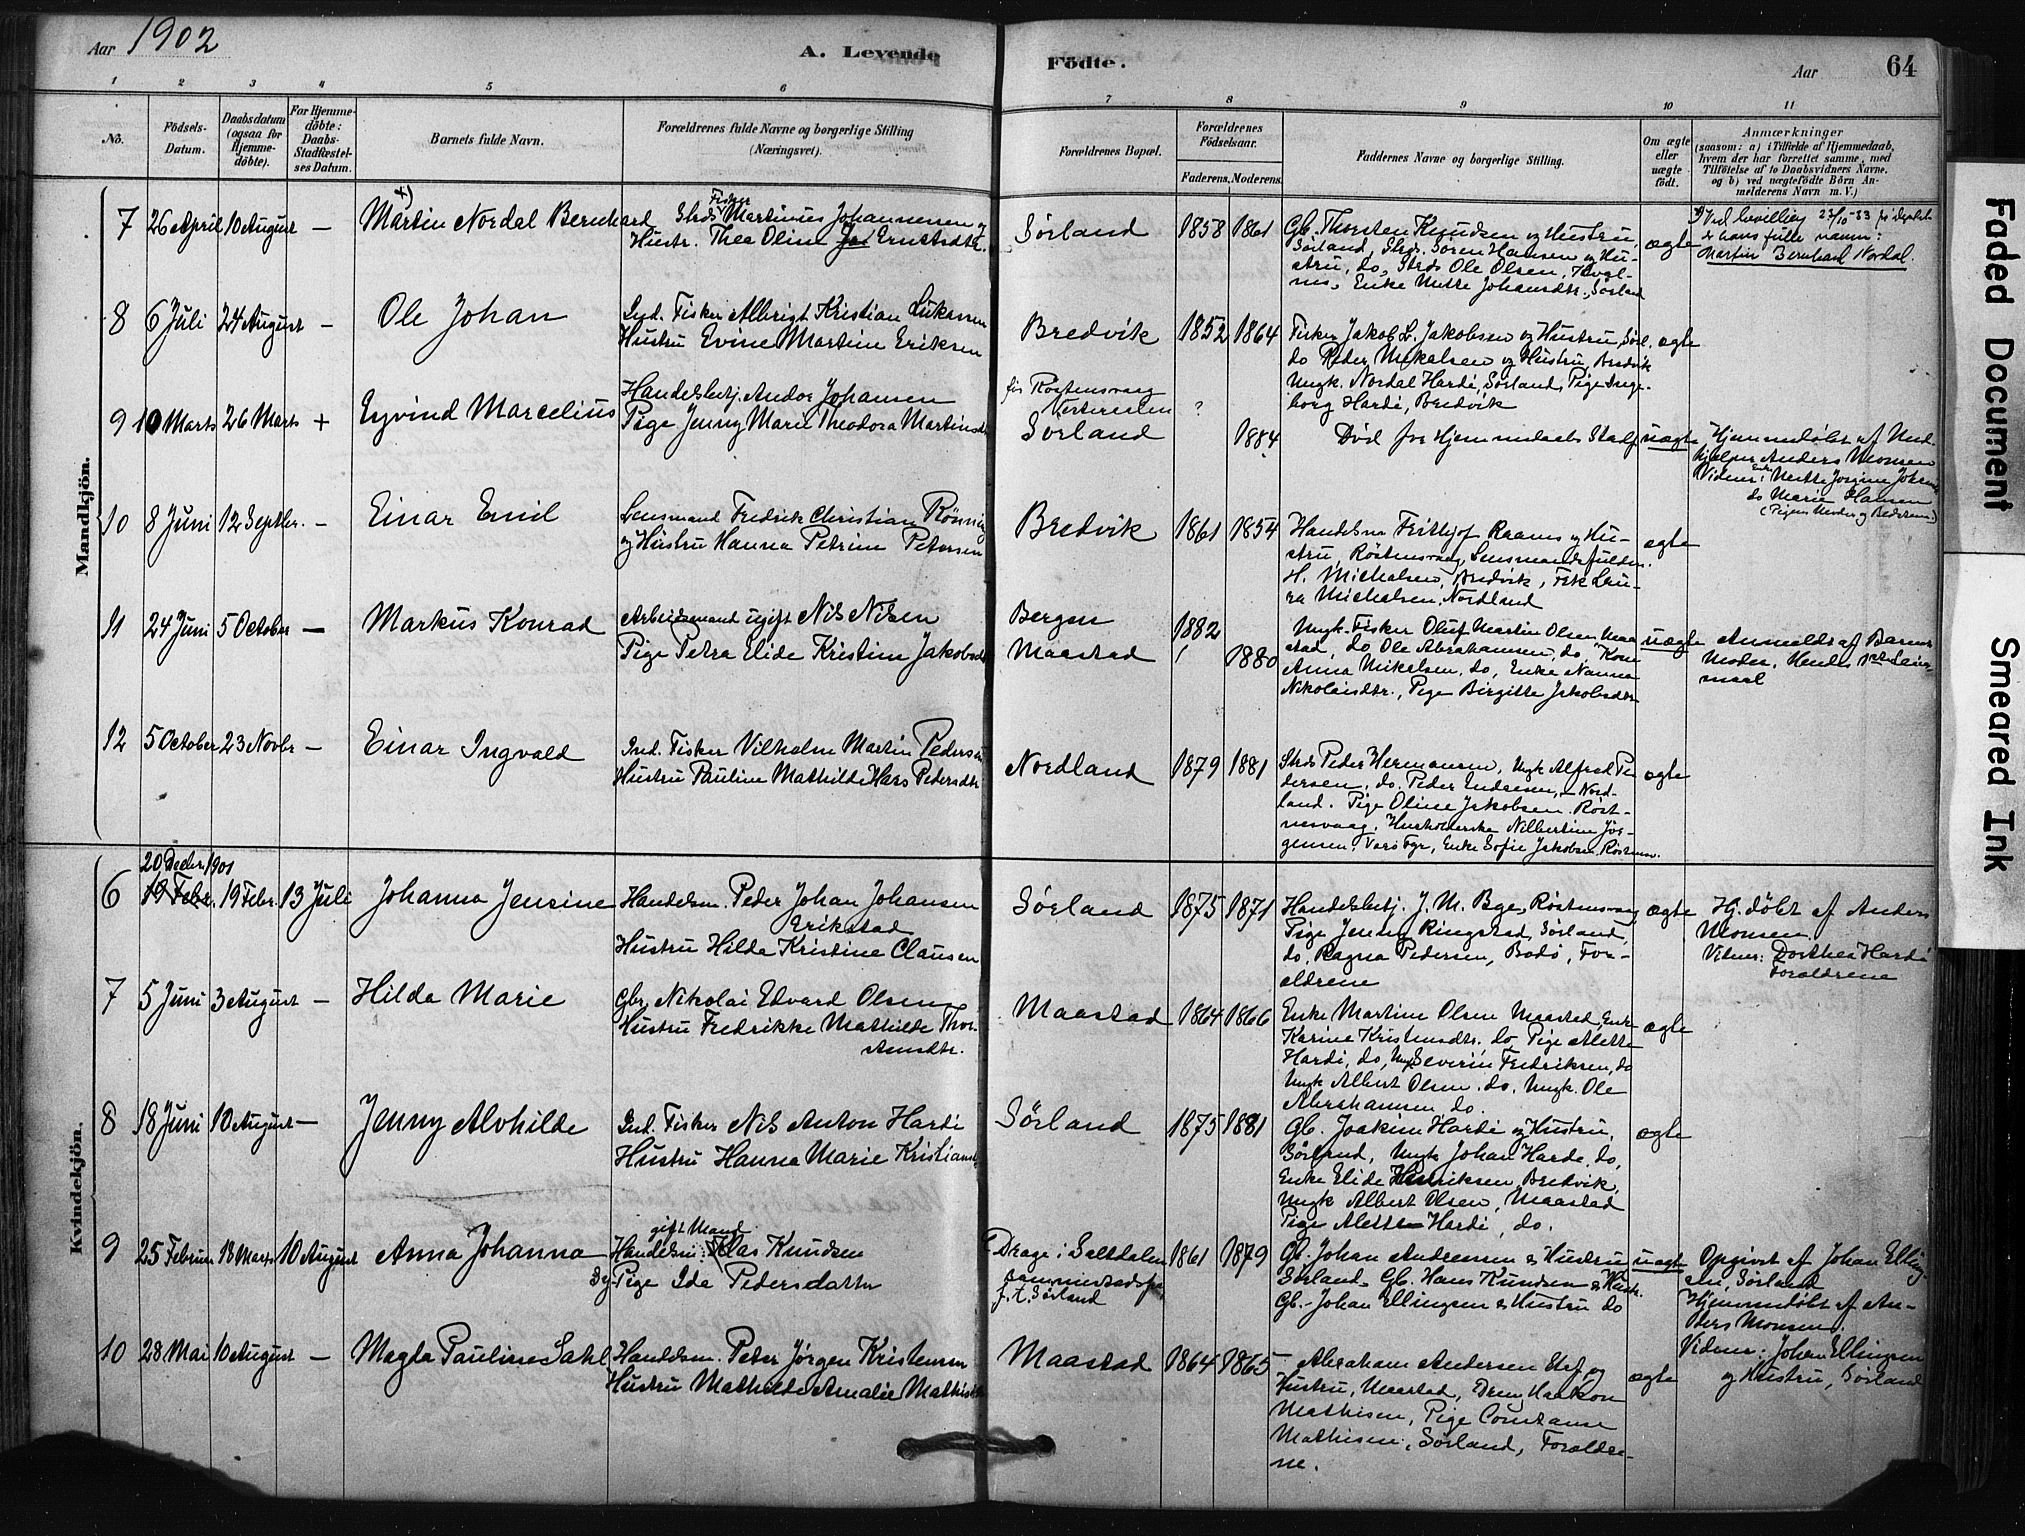 Aar 1902
A. Levende Födte.
Aar 64
1 2 3 4 5 6 7 8 9 10 11
No.
Födsels-Datum.
Daabsdatum (ogsaa for Hjemme-döbte).
For Hjemme-döbte: Daabs-Stadfæstel-ses Datum.
Barnets fulde Navn.
Forældrenes fulde Navne og borgerlige Stilling (Næringsvei).
Forældrenes Bopæl.
Forældrenes Födselsaar.
Faderens. Moderens.
Faddernes Navne og borgerlige Stilling.
Om ægte eller uægte födt.
Anmærkninger
(saasom: a) i Tilfælde af Hjemmedaab,
hvem der har forrettet samme, med
Tilföielse af to Daabsvidners Navne,
og b) ved uægtefödte Börn An-
melderens Navn m. V.)
Mandkjön.
7 26 April 10 August — Martin Nordal Bernhard
Fisker
Strds Martinius Johannesen og
Hustr. Thea Oline Erntsdtr.
Sørland 1858 1861
Gb. Thorsten Knudsen og Hustru,
Sørland, Strds. Søren Hansen og Hu-
stru, do, Strds Ole Olsen,
Enke Mette Johansdtr., Sørland
ægte
hans fulle navn:
Martin Bernhard Nordal.
8 6 Juli 24 August — Ole Johan
Ind. Fisker Albrigt Kristian
Hustru Evine Martine Eriksen
Bredvik 1852 1864
Fisker Jakob L. Jakobsen og Hustru, Sørl.
do Peder Mikalsen og Hustru, Bredvik
Ungk. Nordal Hardi, Sørland, Pige Inge-
borg Hardi, Bredvik
ægte
9 10 Marts 26 Marts + Eyvind Marcelius
Handelsbetj. Andor Johansen
Pige Jenny Marie Theodora
Røstensvaag
?
Sørland 1884
Død før Hjemmedaabs Stadf.
uægte
Hjemmedøbt af
Anders Monsen
Vidner:
do Marie Hansen
10 8 Juni 12 Septbr. — Einar Emil
Lensmand Fredrik Christian Rønning
og Hustru Hanna Petrine Petersen
Bredvik 1861 1854
Handelsm Frithjof Raams og Hu-
stru, Røstensvaag, Lensmandsfuldm.
H. Michalsen, Bredvik, Frk Lau-
ra Michalsen, Nordland
ægte
11 24 Juni 5 October — Markus Konrad
Arbeidsmand ugift Nils Nilsen
Pige Petra Elide Kristine Jakobsdtr
Bergen 1882
Maastad 1880
Ungk. Fisker Oluf Martin Olsen, Maa-
stad, do Ole Abrahamsen, do, Kone
Anna Mikelsen, do, Enke Nanna
Nikolaisdtr., Pige Birgitte Jakobsdtr
uægte
Anmeldt af Barnets
Moder, Hendes 1ste Leier-
maal
12 5 October 23 Novbr — Einar Ingvald
Ind. Fisker Vilhelm Martin Pedersen
Hustru Pauline Mathilde Hass Pedersdtr
Nordland 1879 1881
Strds Peder Hermansen, Ungk Alfred Pe-
dersen, do, Peder Endresen, Nord-
land. Pige Oline Jakobsen Røst-
nesvaag, Husholderske Nilbertine Jör-
gensen, Værø Fyr, Enke Sofie Jakobsen
ægte
Kvindekjön.
20 Decbr. 1901
6 19 Febr. 19 Febr. 13 Juli Johanna Jensine
Handelsm. Peder Johan Johansen
Erikstad
Hustru Hilda Kristine Clausen
Sørland 1875 1871
Handelsbetj. J. M. Røstensvaag
Pige Jenny Ringstad, Sørland,
do. Ragna Pedersen, Bodø, For-
ældrene
ægte
Hj. døbt af Anders
Monsen.
Vidner: Dorthea Hardi
Forældrene
7 5 Juni 3 August — Hilda Marie
Gbr. Nikolai Edvard Olsen
Hustru Fredrikke Mathilde Thor-
Maastad 1864 1866
Enke Martine Olsen Maastad, Enke
Karine Kristensdtr. do, Pige Alette
Hardi, do, Ung. Severin Fredriksen, do
Ungk Albert Olsen, do, Ungk. Ole
Abrahamsen, do.
ægte
8 18 Juni 10 August — Jenny Alvhilde
Ind. Fisker Nils Anton Hardi
Hustru Hanna Marie
Sørland 1875 1881
Gb. Joakim Hardi og Hustru,
Sørland, Ungk Johan Harde, do,
Enke Elide Henriksen, Bredvik,
Ungk Albert Olsen, Maastad
Pige Alette Hardi, do.
ægte
9 25 Februar 18 Marts 10 August Anna Johanna
gift Mand
Handelsm: Klas Knudsen
og Pige Ida Pedersdatter
Drage i Saltdalen
f. t. Sørland
1861 1879
Gb. Johan Andreassen & Hustru
Sørland, Gb. Hans Knudsen & Hustr.
Gb. Johan Ellingsen & Hustru do
uægte
Opgivet af Johan Elling-
sen, Sørland
Hjemmedøbt af An-
ders Monsen.
Vidner: Johan Ellingsen
og Hustru, Sørland
10 28 Mai 10 August — Magda Pauline
Handelsm. Peter Jørgen Kristensen
Hustru Mathilde Amalie
Maastad 1864 1865
Abraham Andersen og
Hustru, Maastad, Dreng Haakon
Mathisen, Pige Constanse
Mathisen, Sørland, Forældre-
ne.
ægte
Faded Document
Smeared Ink